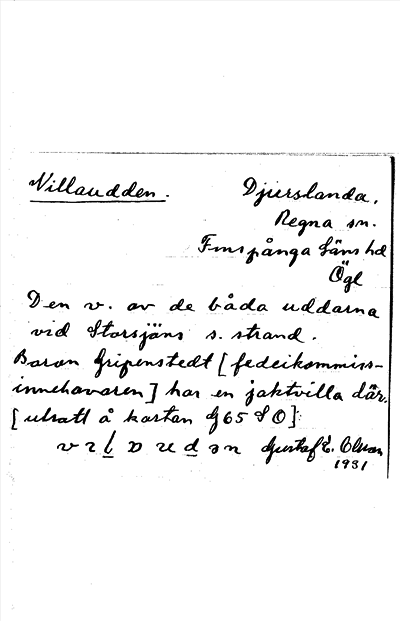 Villaudden. Djurslanda,
Regna sn.
Finspånga läns hd
Ögl
Den v. av de båda uddarna
vid Storsjöns s. strand.
Baron Gripenstedt [fedeikommiss-
innehavaren] har en jaktvilla där.
[utsatt å kartan G 65 S O]:
Gustaf E. Olson
1931